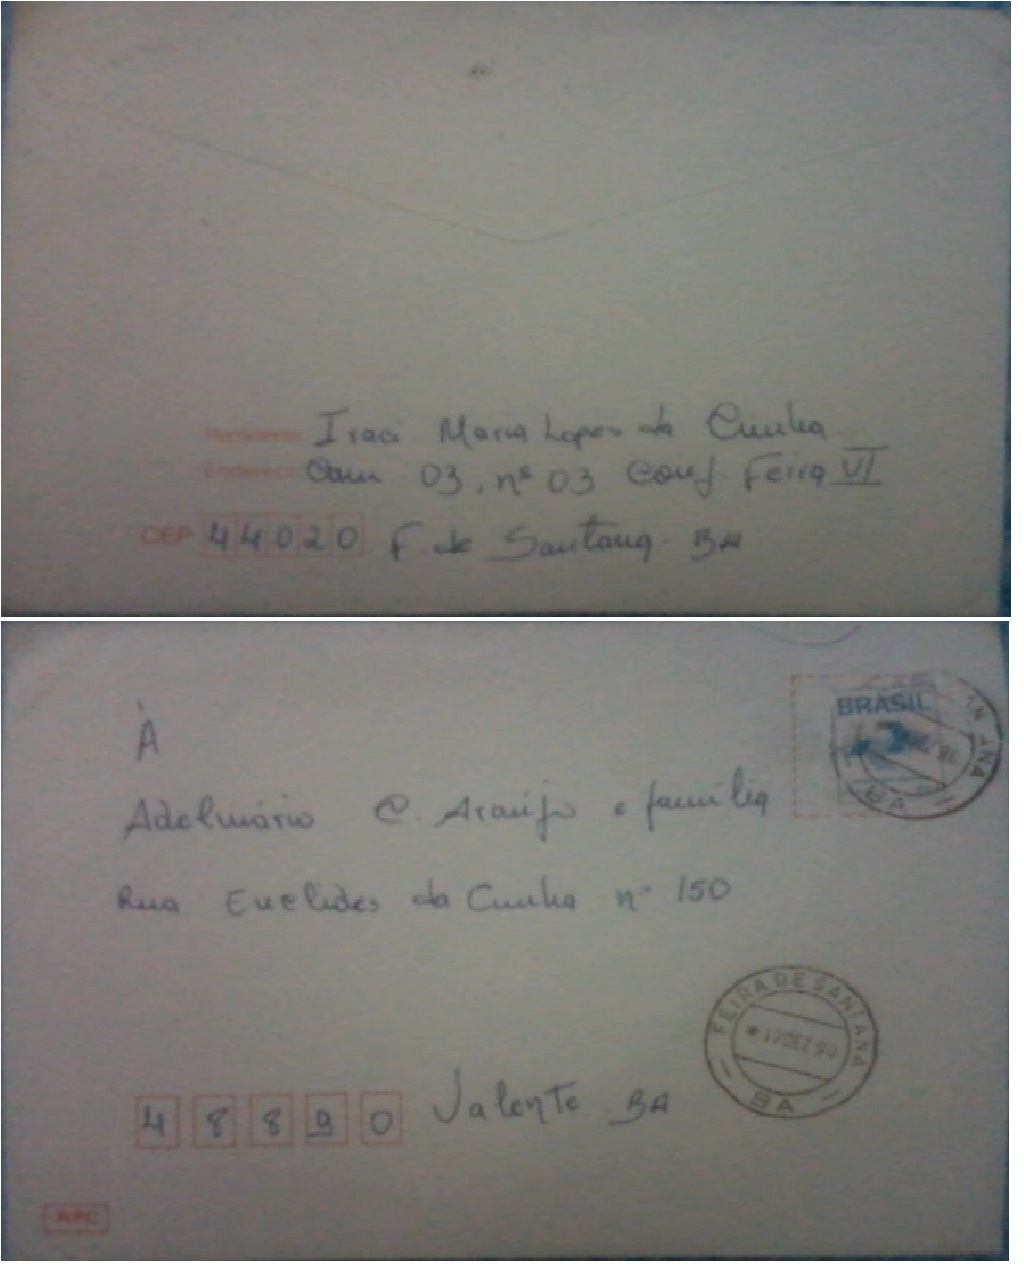 Remetente: Iraci Maria Lopes da Cunha
Endereço: Cam. 03, nº 03 Conj. Feira VI
CEP 44020 F de Santana. BA
BRASIL
BA
À
Adelmário C. Araújo e família
Rua Euclides da Cunha nº 150
FEIRA DE SANTANA
12 DEZ 90
BA
48890 Valente BA